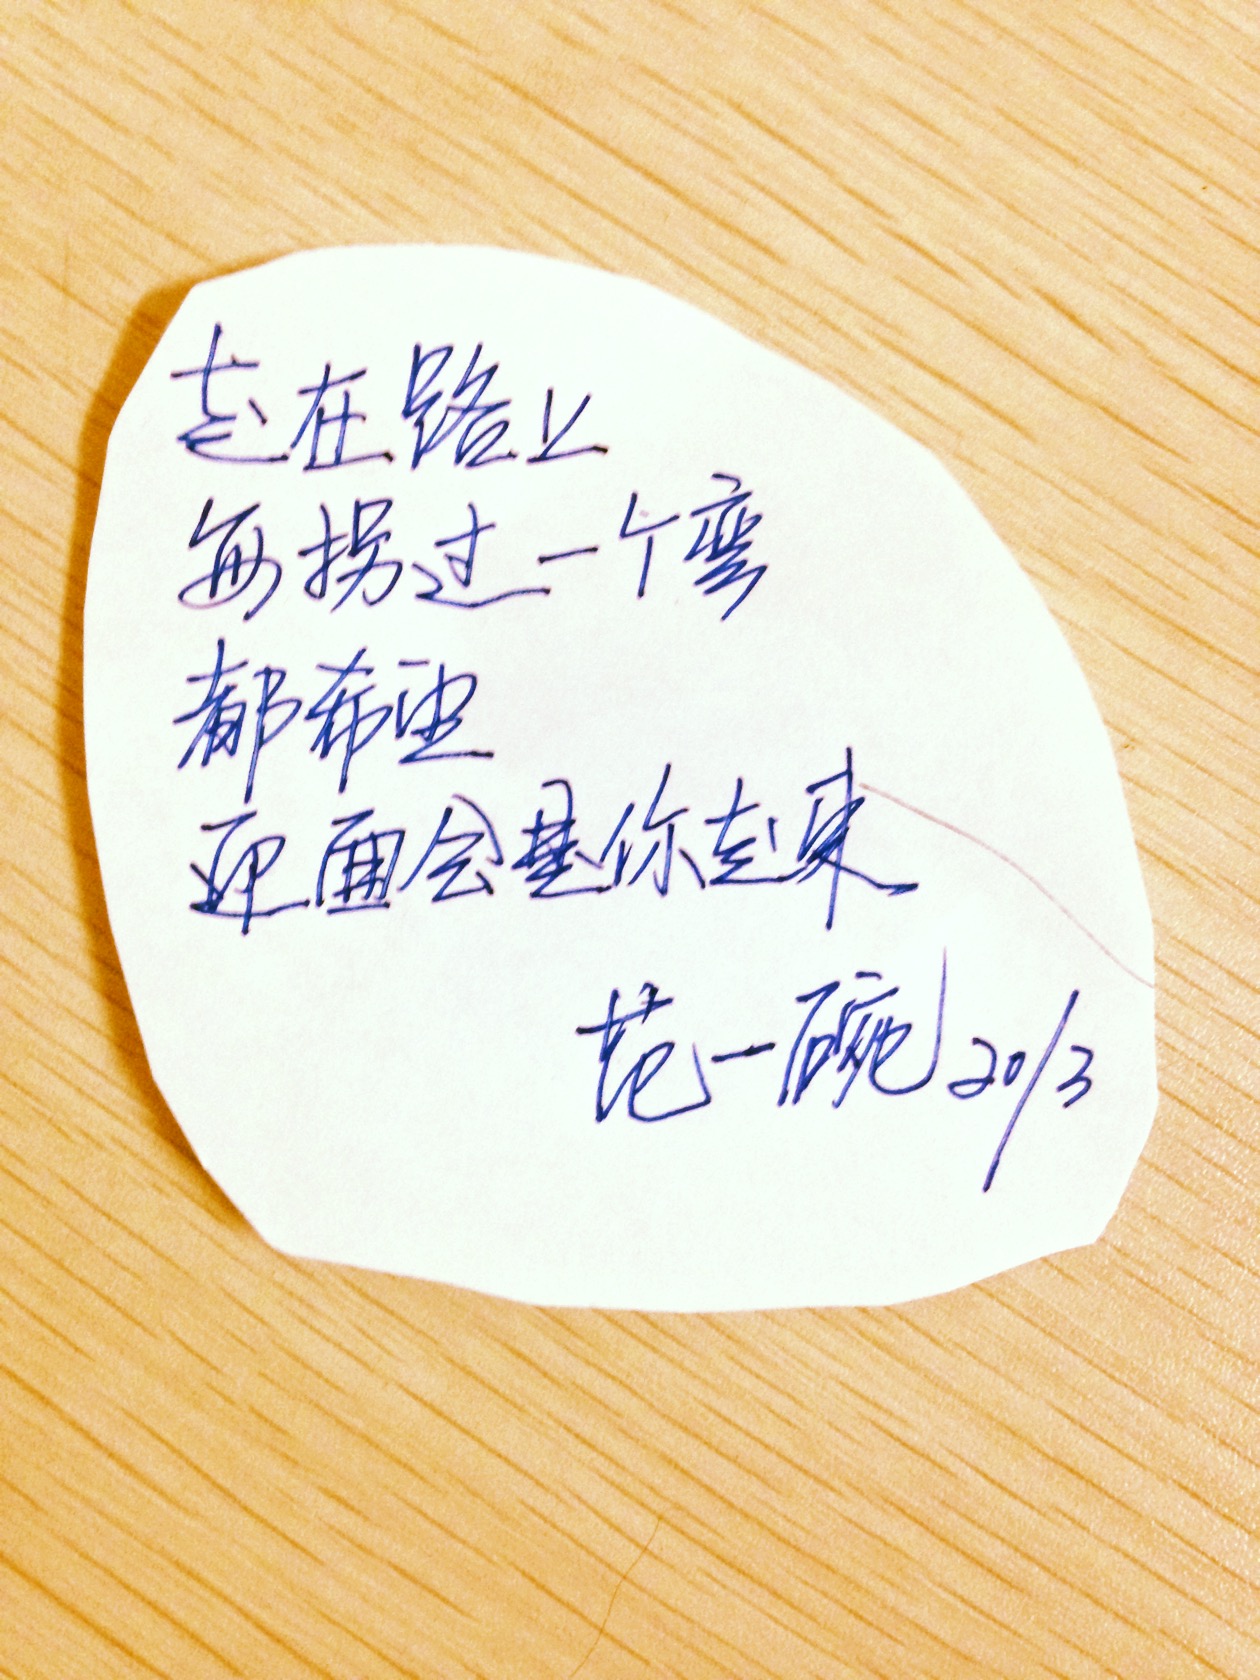 走在路上
每拐过一个弯
都希望
迎面会是你走来
范一碗 20/3